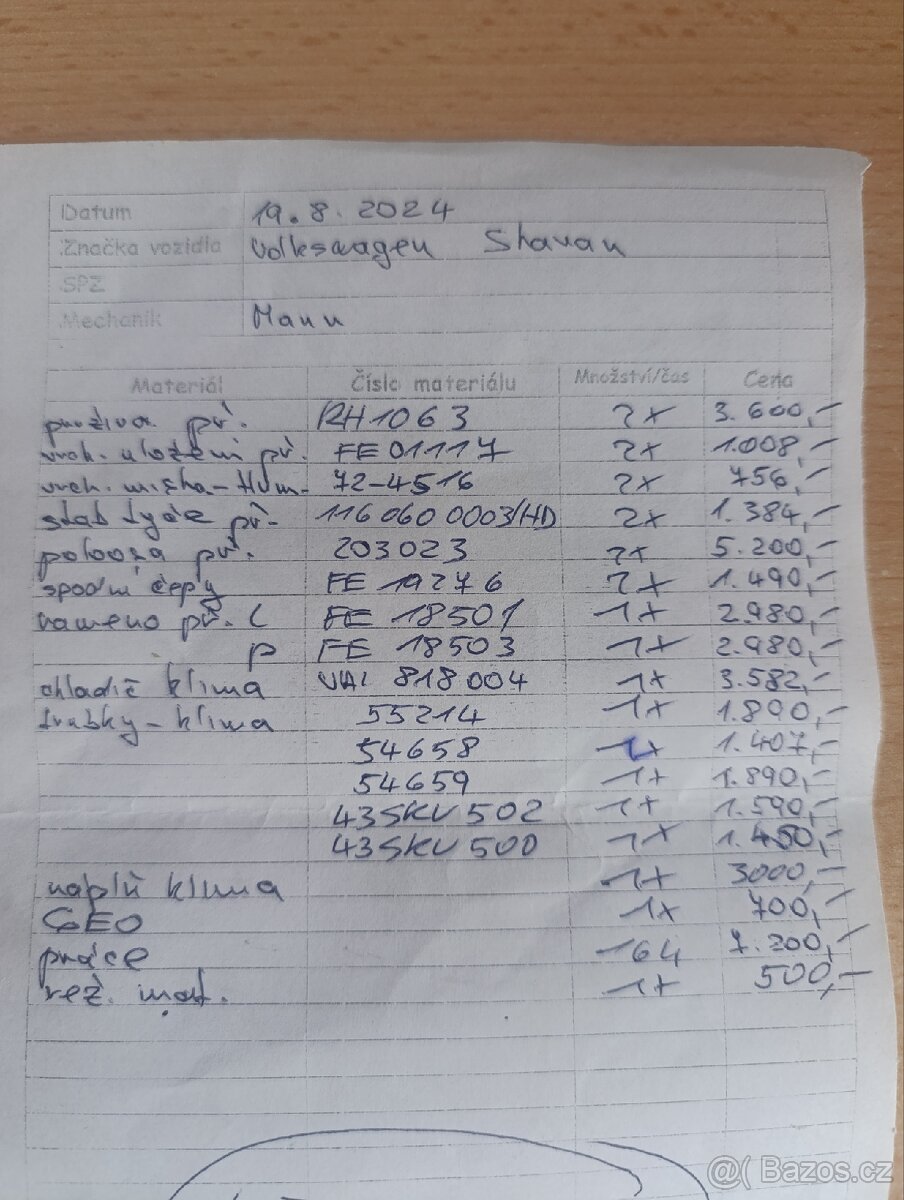 Datum 19.8.2024
Značka vozidla Volkswagen Sharan
SPZ
Mechanik Mann
Materiál Číslo materiálu Množství/čas Cena
pružina př. RH1063 2x 3.600,-
vrch. uložení př. FE01117 2x 1.008,-
vrch. miska-tlum. 72-4516 2x 756,-
stab tyče př. 116 060 0003/HD 2x 1.384,-
poloosa př. 203023 2x 5.200,-
spodní čepy FE 19276 2x 1.490,-
rameno př. L FE 18501 1x 2.980,-
P FE 18503 1x 2.980,-
chladič klima VAL 818004 1x 3.582,-
trubky-klima 55214 1x 1.890,-
54658 1x 1.407,-
54659 1x 1.890,-
43SKV 502 1x 1.590,-
43SKV 500 1x 1.450,-
náplň klima 1x 3000,-
GEO 1x 700,-
práce 7.200,-
rež. mat. 1x 500,-
@( Bazos.cz